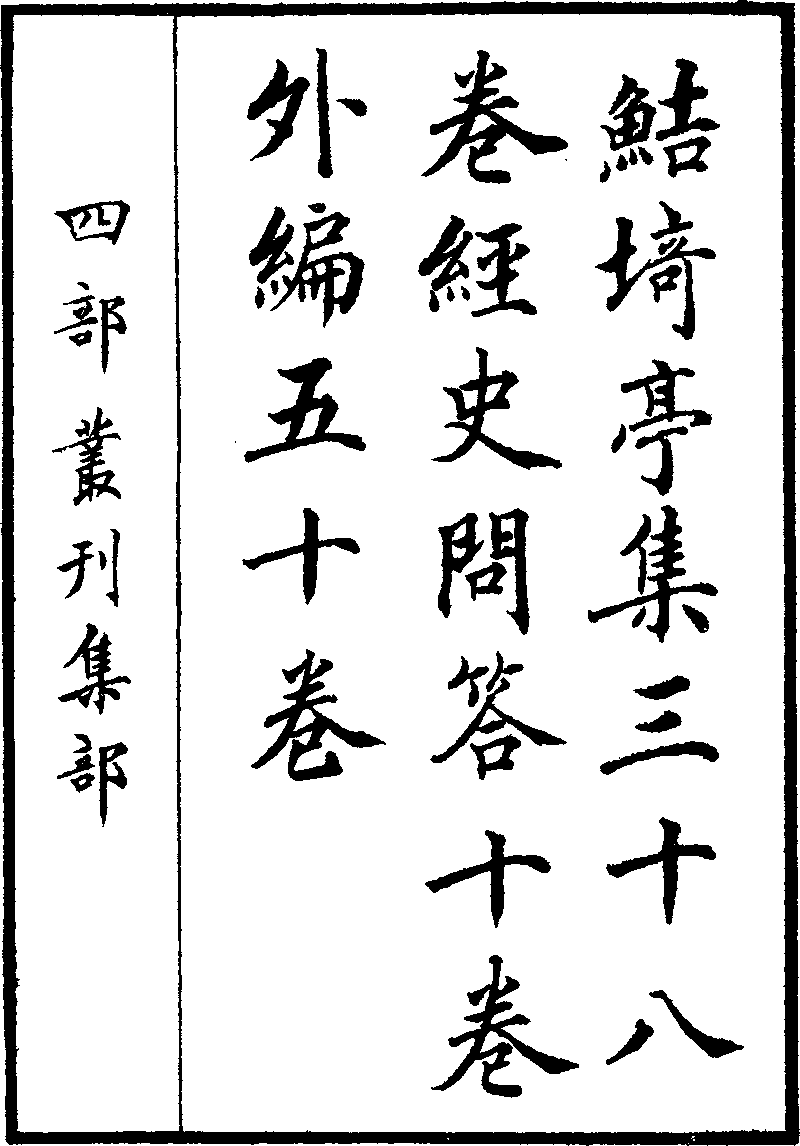 鮚埼亭集三十八
卷經史問答十卷
外編五十卷
四部叢刊集部